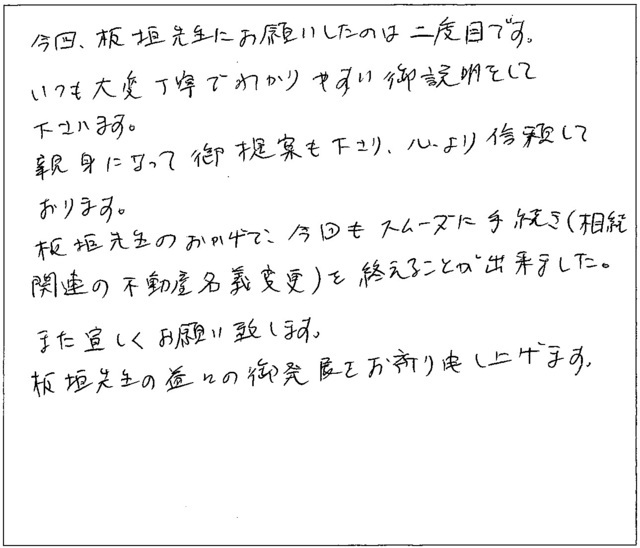 今回、板垣先生にお願いしたのは二度目です。
いつも大変丁寧でわかりやすい御説明をして
下さいます。
親身になって御提案も下さり、心より信頼して
おります。
板垣先生のおかげで、今回もスムーズに手続き(相続
関連の不動産名義変更)を終えることが出来ました。
また宜しくお願い致します。
板垣先生の益々の御発展をお祈り申し上げます。